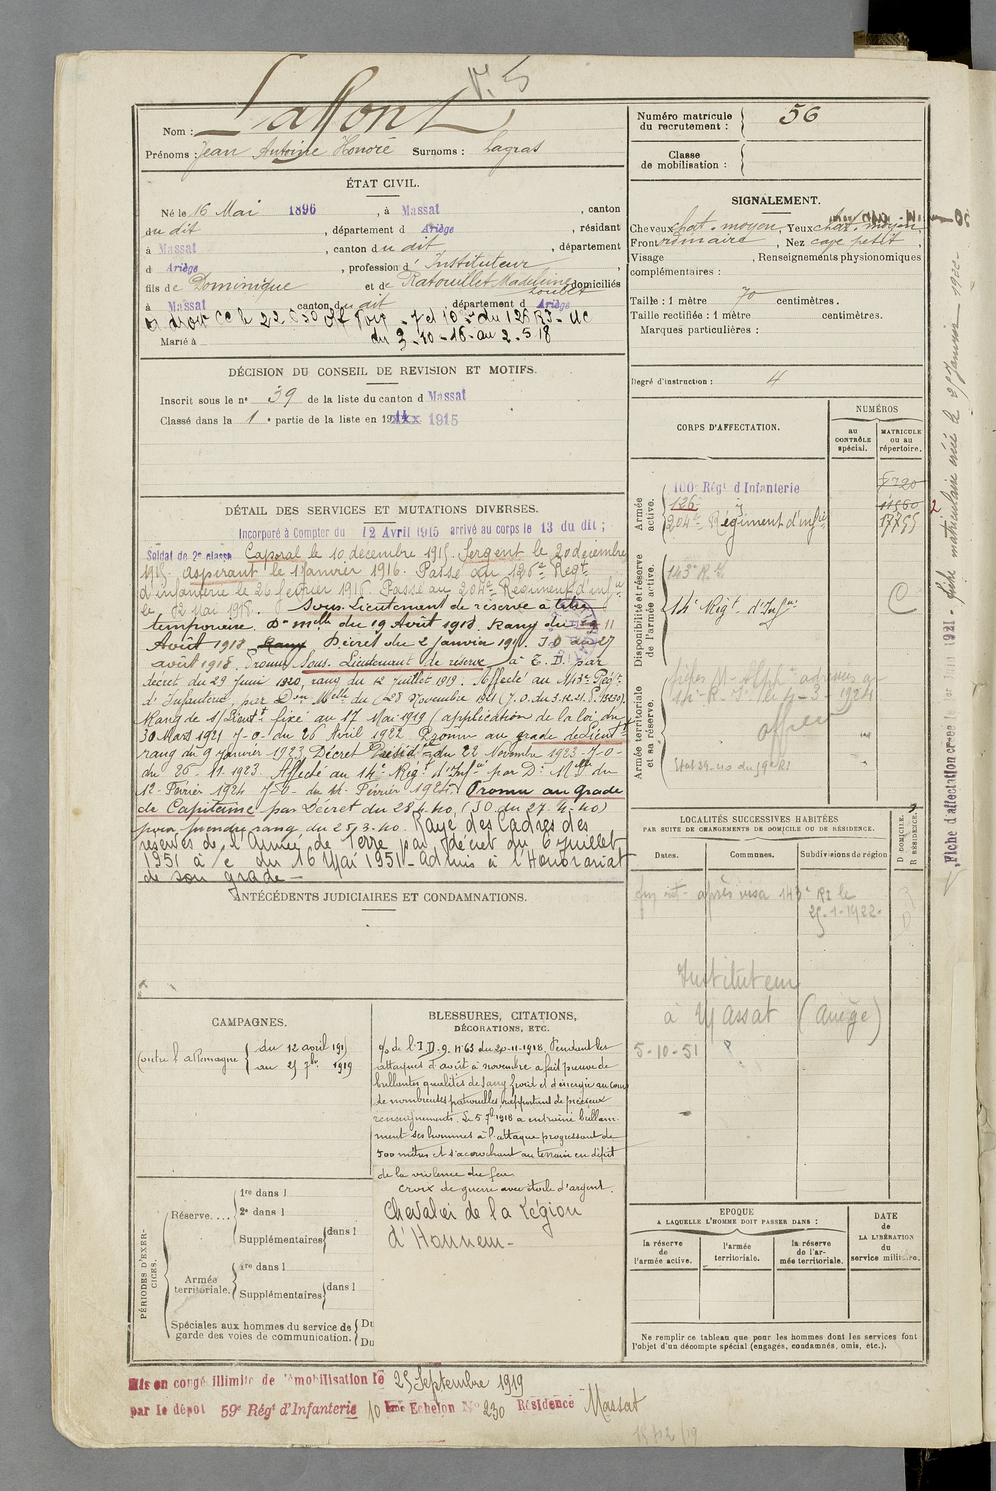 V. S
Nom : Laffont
Prénoms : Jean Antoine Honoré Surnoms : Lagras
ÉTAT CIVIL.
Né le 16 Mai 1896, à Massat, canton
du dit, département d Ariège, résidant
à Massat, canton du dit, département
d Ariège, profession d'Instituteur,
fils de Dominique et de Ratouillet Madeleine domiciliés
à Massat canton du dit, département d Ariège
7 et 10 du 126 RI - UC
Marié à du 3-10-16 au 2-5-18
DÉCISION DU CONSEIL DE REVISION ET MOTIFS.
Inscrit sous le no 39 de la liste du canton d Massat
Classé dans la 1e partie de la liste en 1915
DÉTAIL DES SERVICES ET MUTATIONS DIVERSES.
Incorporé à Compter du 12 Avril 1915 arrivé au corps le 13 du dit ;
Soldat de 2e classe Caporal le 10 décembre 1915. Sergent le 20 décembre
1915. aspirant le 1 janvier 1916. Passé au 126e Régt
d'infanterie le 26 février 1916 Passé au 204e Régiment d'infie
le 12 mai 1918. Sous-Lieutenant de réserve à titre
temporaire. Don mlle du 19 Août 1918. Rang du 11
Août 1918 Rang Décret du 2 janvier 191 . J.O du 27
août 1918. Promu Sous-Lieutenant de réserve à T.D. par
décret du 29 Juin 1920, rang du 12 juillet 1919. Affecté au 143e Régt
d'Infanterie, par Don Mlle du 28 Novembre 1921 (J.O. du 3.12.21. P.
Rang de S/Lieutt fixé au 17 Mai 1919 (application de la loi du
30 Mars 1921 J-O- du 26 Avril 1922. Promu au grade de Lieutt
rang du 9 Janvier 1923 Décret Présidtel du 22 Novembre 1923 J-O-
du 26-11-1923. Affecté au 14e Régt d'Infie par Don Mlle du
12 Février 1924 J-O- du Février 1924. Promu au grade
de Capitaine par Décret du 28.4.40 (J.O. du 27-4-40)
pour prendre rang du 25-3-40. Rayé des Cadres des
réserves de l'Armée de Terre par décret du 6 Juillet
1951 à/c du 16 Mai 1951 - Admis à l'Honorariat
de son grade -
ANTÉCÉDENTS JUDICIAIRES ET CONDAMNATIONS.
CAMPAGNES.
Contre l'allemagne { du 12 avril 1915
au 25 7bre 1919
BLESSURES, CITATIONS,
DÉCORATIONS, ETC.
O/ de l'I.D. 9. n°63 du 20-11-1918. Pendant les
attaques d'août à novembre a fait preuve de
brillantes qualités de sang froid et d'énergie au cours
de nombreuses patrouilles, rapportant de précieux
renseignements. Le 5 7bre 1918 a entrainé brillam-
ment ses hommes à l'attaque progressant de
500 mètres et s'accrochant au terrain en dépit
de la violence du feu.
Croix de guerre avec étoile d'argent.
Chevalier de la Légion
d'Honneur-
PÉRIODES D'EXERCICES.
Réserve.... 1re dans l
2e dans l
Supplémentaires dans l
Armée territoriale. 1re dans l
Supplémentaires dans l
Spéciales aux hommes du service de garde des voies de communication. Du
Du
Mis en congé illimité de démobilisation le 25 Septembre 1919
par le dépot 59e Régt d'Infanterie 10 ème Echelon No 230 Résidence Massat
Numéro matricule du recrutement : 56
Classe de mobilisation :
SIGNALEMENT.
Cheveux chat. moyen, Yeux chat. moyen
Front ordinaire, Nez cave petit,
Visage , Renseignements physionomiques
complémentaires :
Taille : 1 mètre 70 centimètres.
Taille rectifiée : 1 mètre centimètres.
Marques particulières :
Degré d'instruction : 4
CORPS D'AFFECTATION.
NUMÉROS
AU CONTRÔLE SPÉCIAL.
MATRICULE OU AU RÉPERTOIRE.
Armée active.
100e Régt d'Infanterie 7720
126 11560
204e Régiment d'infie 17755
Disponibilité et réserve de l'armée active.
143e R.I.
14e Régt d'Infie
C
Armée territoriale et sa réserve.
14e R. I. le 4-3-1924
LOCALITÉS SUCCESSIVES HABITÉES
PAR SUITE DE CHANGEMENTS DE DOMICILE OU DE RÉSIDENCE.
Dates. Communes. Subdivisions de région
D DOMICILE.
R RÉSIDENCE.
après visa 143e RI le
25-1-1922.
Instituteur
à Massat (Ariège)
5-10-51
EPOQUE
A LAQUELLE L'HOMME DOIT PASSER DANS :
la réserve de l'armée active.
l'armée territoriale.
la réserve de l'armée territoriale.
DATE
de
LA LIBÉRATION
du
service militaire.
Ne remplir ce tableau que pour les hommes dont les services font
l'objet d'un décompte spécial (engagés, condamnés, omis, etc.).
Fiche d'affectation créée le 1921 - fiche matriculaire créée le 25 Janvier 1922 -